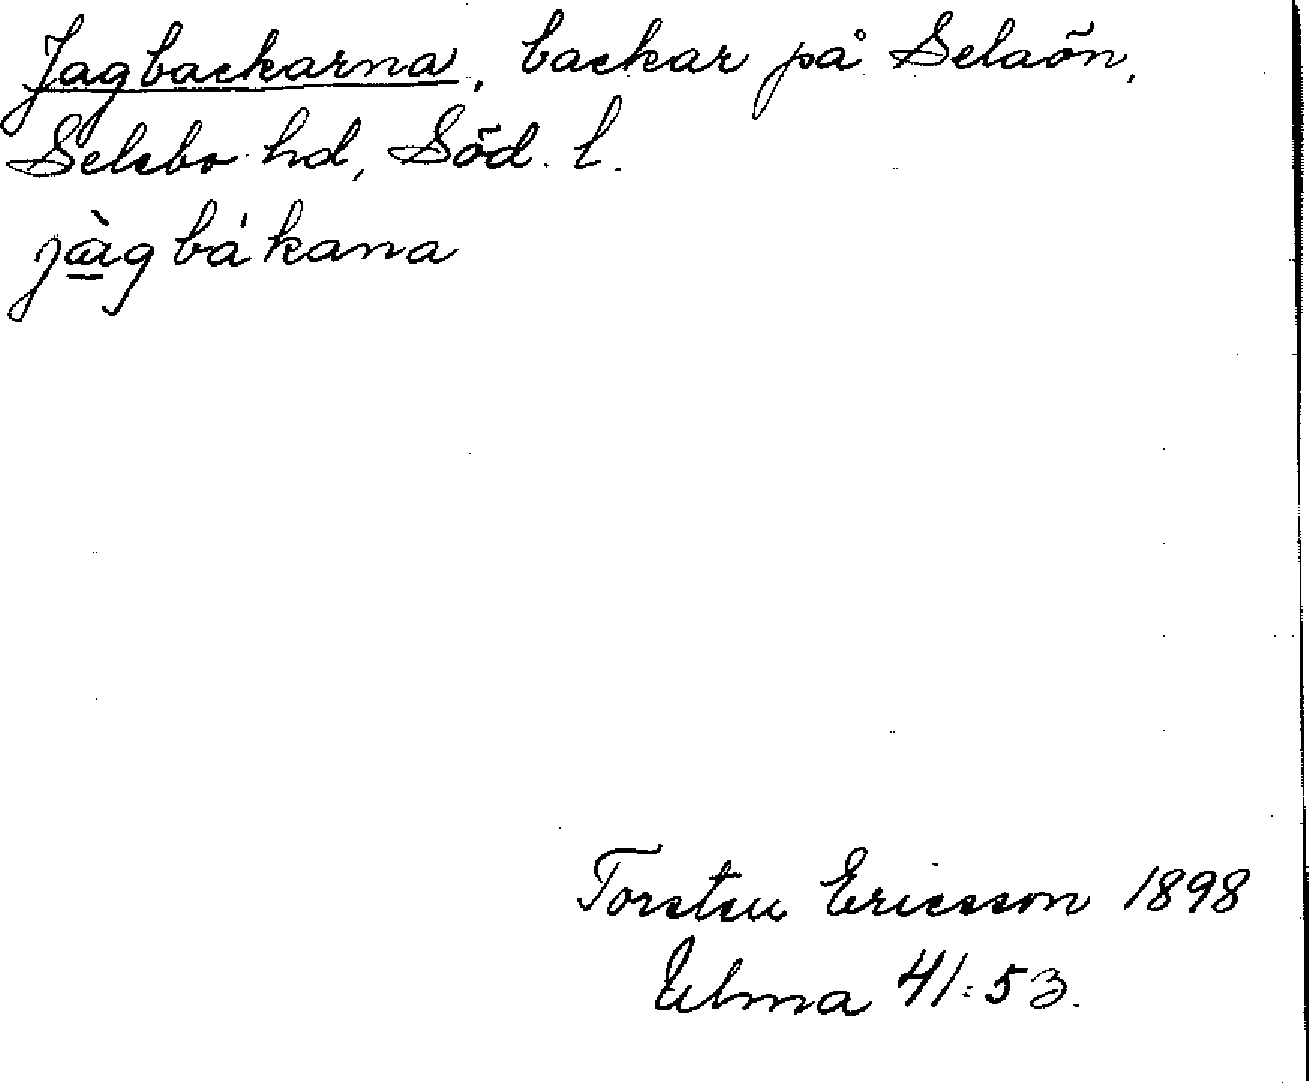 Jagbackarna, backar på Selaön,
Selebo hd, Söd. l.
jàgbákana
Torsten Ericsson 1898
Ulma 41:53.